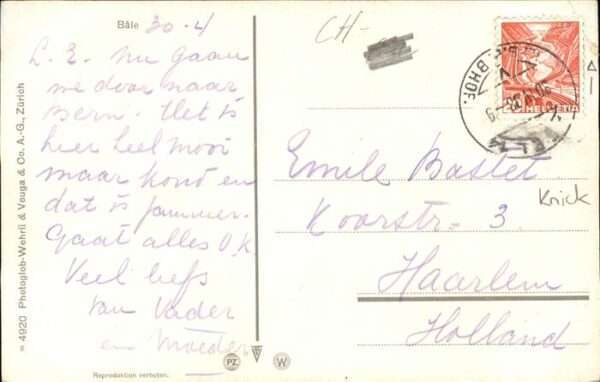 Bâle 30-4
L. E. Nu gaan
we door naar
Bern. Het is
hier heel mooi
maar koud en
dat is jammer.
Gaat alles O.K.
Veel liefs
van Vader
en Moeder
CH-
HELVETIA
BHF.
Emile Bastet
Koorstr. 3
Knick
Haarlem
Holland
4920 Photoglob-Wehrli & Vouga & Co. A.-G., Zürich
PZ
W
Reproduktion verboten.